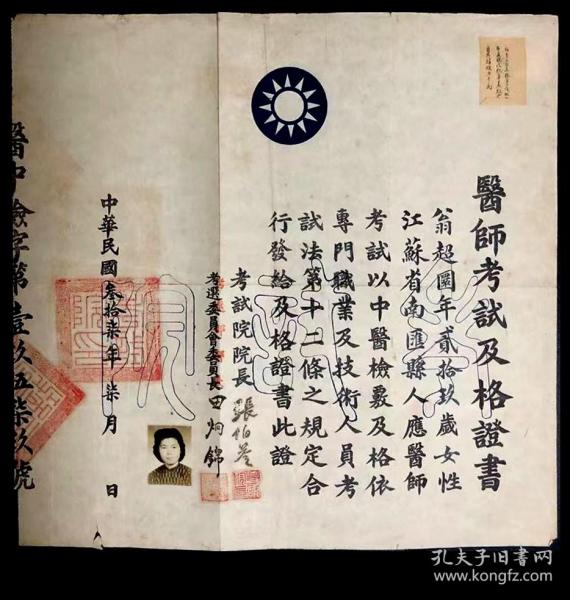 醫師考試及格證書
翁超國年貳拾玖歲女性
江蘇省南匯縣人應醫師
考試以中醫檢覈及格依
專門職業及技術人員考
試法第十二條之規定合
行發給及格證書此證
考試院院長 張伯苓
考選委員會委員長 田炯錦
中華民國叁拾柒年柒月 日
醫中檢字第壹玖五柒玖號
孔夫子旧书网
www.kongfz.com